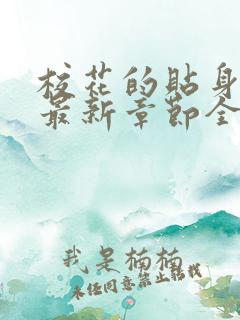 校花的贴身
最新章节全
我是楠楠
未经同意禁止转载